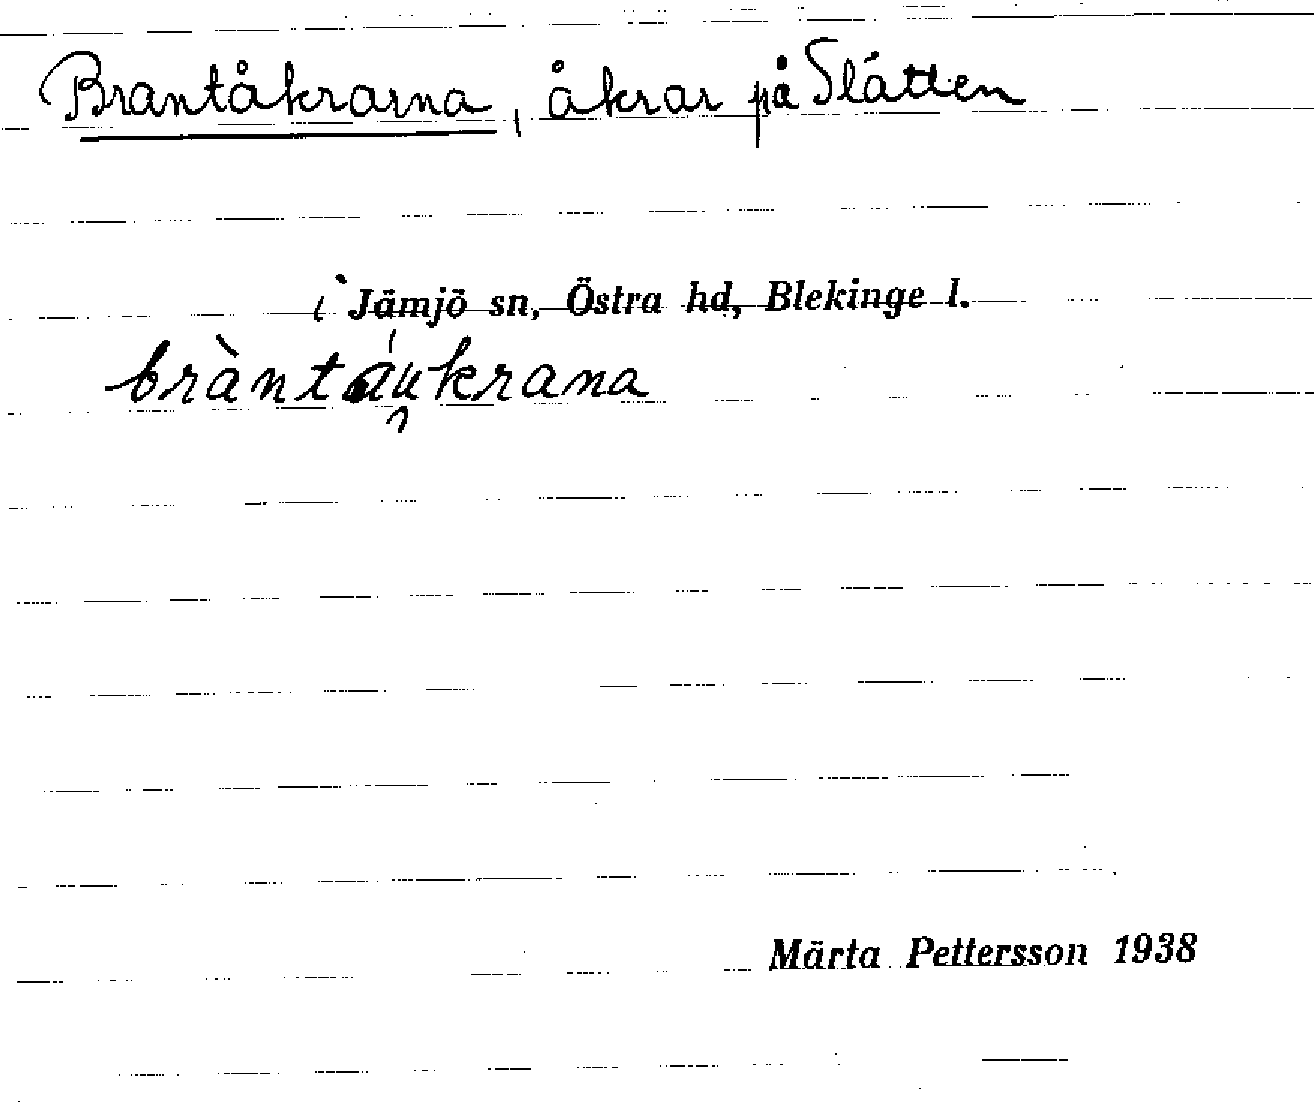 Brantåkrarna, åkrar på Slätten
i Jämjö sn, Östra hd, Blekinge l.
bràntáu̯krana
Märta Pettersson 1938